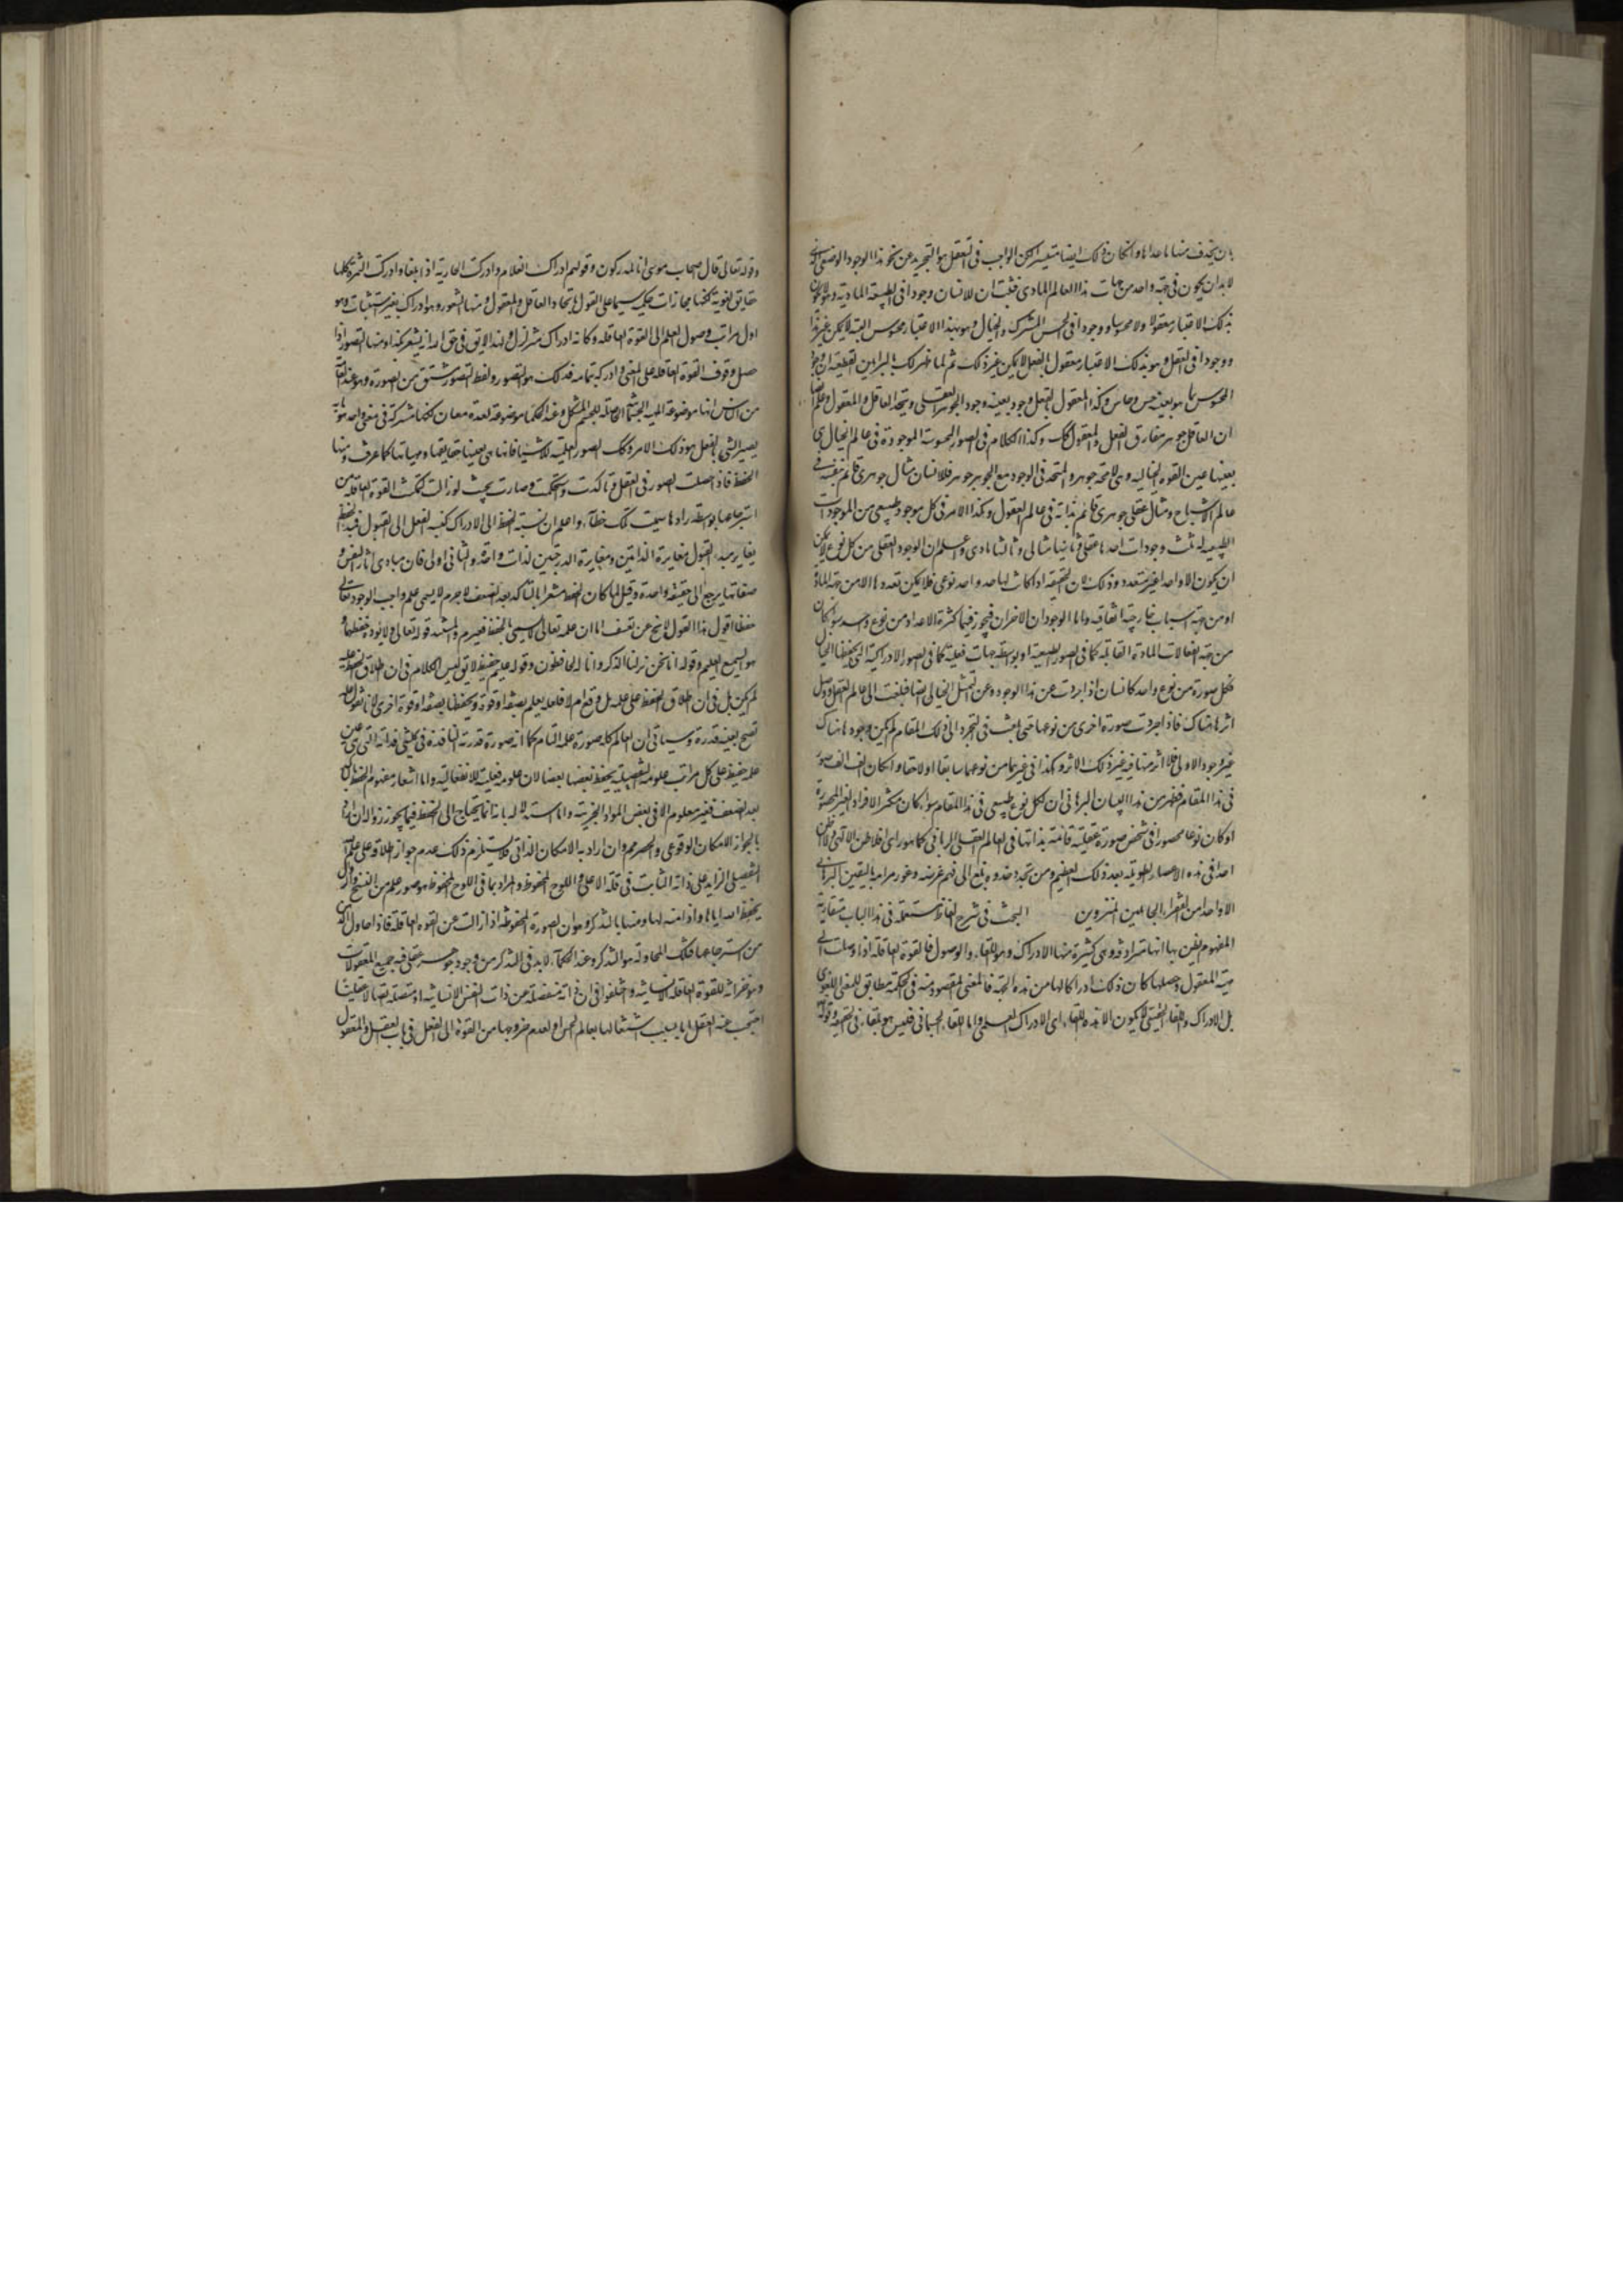 بان يحذف منها ما عداها وان كان ذلك ايضا متيسرا لكن الواجب في التعقل هو التجريد عن نحو هذا الوجود الوضعي الذي
لا بد ان يكون في جهة واحدة من جهات هذا العالم المادي فثبت ان للانسان وجودا في الطبيعة المادية وهو لا يكون
بذلك الاعتبار معقولا ولا محسوسا ووجودا في الحس المشترك والخيال وهو بهذا الاعتبار محسوس البتة لا يمكن غير هذا
ووجودا في العقل وهو بذلك الاعتبار معقول بالفعل لا يمكن غير ذلك ثم لما ظهر لك بالبراهين القطعية ان وجود
المحسوس بما هو بعينه حس وحاس وكذا المعقول بالفعل وجوده بعينه وجود الجوهر العقلي ويتحد العاقل والمعقول وعلم ايضا
ان العاقل جوهر مفارق بالفعل والمعقول كك وكذا الكلام في الصور المحسوسة الموجودة في عالم الخيال هي
بعينها عين القوة الخيالية وهي لا محة جوهر والمتحد في الوجود مع الجوهر جوهر فللانسان مثال جوهري قائم بنفسه في
عالم الاشباح ومثال عقلي جوهري قائم بذاته في عالم العقول وكذا الامر في كل موجود طبيعي من الموجودات
الطبيعية له ثلث وجودات احدها عقلي وثانيها مثالي وثالثها مادي واعلم ان الوجود العقلي من كل نوع لا يمكن
ان يكون الا واحدا غير متعدد وذلك لان الحقيقة اذا كانت لها حد واحد نوعي فلا يمكن تعددها الا من جهة المادة
او من جهة اسباب خارجية اتفاقية واما الوجودان الاخران فيجوز فيهما كثرة الاعداد من نوع واحد سواء كان
من جهة انفعالات المادة القابلة كما في الصور الطبيعية او بواسطة جهات فعلية كما في الصور الادراكية التي يحفظها الخيال
فكل صورة من نوع واحد كانسان اذا جردت عن هذا الوجود وعن التمثل الخيالي ايضا فبلغت الى عالم العقل ووصل
اثرها هناك فاذا جردت صورة اخرى من نوعها حتى بلغت في التجرد الى ذلك المقام لم يكن وجودها هناك
غير وجود الاولى فلا اثر منها فيه غير ذلك الاثر وكذا في غيرهما من نوعهما سابقا او لاحقا وان كان الف الف صورة
في هذا المقام فظهر من هذا البيان البرهاني ان لكل نوع طبيعي في هذا المقام سواء كان متكثر الافراد الغير المحصورة
او كان نوعا محصورا في شخص صورة عقلية قائمة بذاتها في العالم العقلي الرباني كما هو راي افلاطن الالهي ولا اظن
احدا في هذه الاعصار الطويلة بعد ذلك العظيم ومن يحذو حذوه بلغ الى فهم غرضه وغور مرامه باليقين البرهاني
الا واحدا من الفقراء الخاملين المنزوين البحث في شرح الفاظ مستعملة في هذا الباب متقاربة
المفهوم يظن بها انها مترادفة وهي كثيرة منها الادراك وهو اللقاء والوصول فالقوة العاقلة اذا وصلت الى
مهية المعقول وحصلها كان ذلك ادراكا لها من هذه الجهة فالمعنى المقصود منه في الحكمة مطابق للمعنى اللغوي
بل الادراك واللقاء الحقيقي لا يكون الا هذه اللقاء اي الادراك العلمي واما اللقاء الجسماني فليس هو بلقاء في الحقيقة وقوله
وقوله تعالى قال اصحاب موسى انا لمدركون وقولهم ادرك الغلام وادركت الجارية اذا بلغا وادركت الثمرة كلها
حقايق لغوية لكنها مجازات حكمية سيما على القول باتحاد العاقل والمعقول ومنها الشعور وهو ادراك بغير استثبات وهو
اول مراتب وصول العلم الى القوة العاقلة وكانه ادراك متزلزل ولهذا لا يق في حق الله انه يشعر بكذا ومنها التصور اذا
حصل وقوف القوة العاقلة على المعنى وادركه بتمامه فذلك هو التصور ولفظ التصور مشتق من الصورة وهو عند العامة
من الناس انها موضوعة للهيئة الجسمية الحاصلة للجسم المشكل وعند الحكماء موضوعة لعدة معان لكنها مشتركة في معنى واحد هو ما به
يصير الشيء بالفعل هو ذلك الامر وكك الصور العلمية للاشياء فانها هي بعينها حقايقها ومهياتها كما عرفت ومنها
الحفظ فاذا حصلت الصور في العقل وتاكدت واستحكمت وصارت بحيث لو زالت لتمكنت القوة العاقلة من
استرجاعها بواسطة رادها سميت تلك حفظا واعلم ان نسبة الحفظ الى الادراك كنسبة الفعل الى القبول فمبدء الحفظ
يغاير مبدء القبول مغايرة الذاتين ومغايرة الدرجتين لذات واحدة والثاني اولى فان مبادي آثار النفس و
صفاتها يرجع الى حقيقة واحدة وقيل لما كان الحفظ مشعرا بالتاكد بعد الضعف لا جرم لا يسمى علم واجب الوجود تعالى
حفظا اقول هذا القول لا يخ عن تعسف اما ان علمه تعالى لا يسمى بالحفظ فغير مم والسند قوله تعالى ولا يؤده حفظهما و
هو السميع العليم وقوله انا نحن نزلنا الذكر وانا له لحافظون وقوله عليم حفيظ لا يق ليس الكلام في ان اطلاق الحفظ عليه
لم يكن بل في ان اطلاق الحفظ على علمه بل وقع ام لا فلعله يعلم بصفة او قوة ويحفظ بصفة او قوة اخرى لانا نقول علمه
تصح بعينه قدرة وسياتي ان العالم كله صورة علمه التام كما انه صورة قدرته النافذة في كلشيء فذاته التي هي عين
علمه حفيظ على كل مراتب علومه التفصيلية يحفظ بعضها بعضا لان علومه فعلية لا انفعالية واما اشعار مفهوم الحفظ بالتاكد
بعد الضعف فغير معلوم الا في بعض المواد الجزئية واما استدلاله بانه انما يحتاج الى الحفظ فيما يجوز زواله ان اراد
بالجواز الامكان الوقوعي والحصر مم وان اراد به الامكان الذاتي فلا يستلزم ذلك عدم جواز اطلاقه على علمه
التفصيلي الزايد على ذاته الثابت في قلمه الاعلى واللوح المحفوظ والمراد بما في اللوح المحفوظ هو صور علمه من النسخ والزوال
بحفظ الله اياها وادامته لها ومنها التذكر وهو ان الصورة المحفوظة اذا زالت عن القوة العاقلة فاذا حاول الذهن
من استرجاعها فتلك المحاولة هو التذكر وعند الحكماء لا بد في التذكر من وجود جوهر عقلي فيه جميع المعقولات
وهو خزانة للقوة العاقلة الانسانية واختلفوا في ان ذاته منفصلة عن ذات النفس الانسانية او متصلة بها اتصالا عقليا
احتجب عنه العقل اما بسبب اشتغالها بعالم الحس او لعدم خروجها من القوة الى الفعل في باب العقل والمعقول